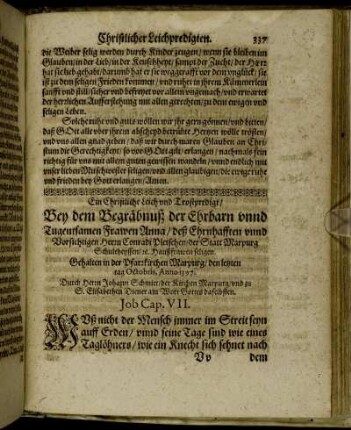 Christlicher Leichpredigten. 337
die Weiber selig werden durch Kinder zeugen/ wenn sie bleiben im
Glauben/ in der Lieb/ in der Keuschheyt/ sampt der Zucht/ der Herr
hat sie lieb gehabt/ darumb hat er sie weggerafft vor dem unglück/ sie
ist zu dem seligen Frieden kommen/ und ruhet in ihrem Kämmerlein
sanfft und still/ sicher und befreyet vor allem ungemach/ und erwartet
der herrlichen Aufferstehung mit allen gerechten/ zu dem ewigen und
seligen Leben.
Solche ruhe und guts wöllen wir ihr gern gönnen/ und bitten/
daß GOtt alle uber ihrem abscheyd betrübte Hertzen wölle trösten/
und uns allen gnad geben/ daß wir durch waren Glauben an Chri-
stum die Gerechtigkeyt/ so vor GOtt gilt/ erlangen/ nachmals fein
richtig für uns mit allem guten gewissen wandeln/ unnd endlich mit
unser lieben Mitschwester seligen/ und allen glaubigen/ die ewige ruhe
und frieden bey Gott erlangen/ Amen.
Ein Christliche Leich und Trostpredigt/
Bey dem Begräbnuß der Ehrbarn vnnd
Tugentsamen Frawen Anna/ deß Ehrnhafften vnnd
Vorsichtigen Herrn Conradi Bletschen/ der Statt Marpurg
Schultheyssen/ etc. Haußfrawen seligen.
Gehalten in der Pfarrkirchen Marpurg/ den letzten
tag Octobris, Anno 1597.
Durch Herrn Johann Schmitt/ der Kirchen Marpurg/ und zu
S. Elisabethen Diener am Wort Gottes daselbsten.
Job Cap. VII.
MUß nicht der Mensch immer im Streit seyn
auff Erden/ vnnd seine Tage sind wie eines
Taglöhners/ wie ein Knecht sich sehnet nach
Vv dem